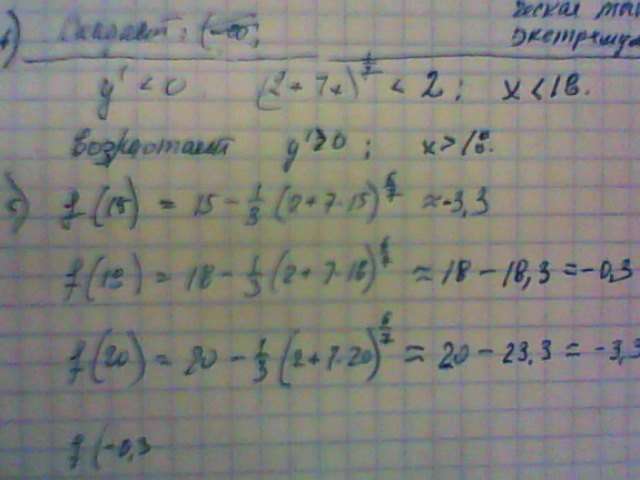 ческая
экстрему
(-∞;
y' < 0 (2+7x)^{1/7} < 2; x < 18.
возрастает y' > 0; x > 18.
5) f(15) = 15 - 1/3 (2+7·15)^{6/7} ≈ -3,3
f(18) = 18 - 1/3 (2+7·18)^{6/7} ≈ 18 - 18,3 = -0,3
f(20) = 20 - 1/3 (2+7·20)^{6/7} ≈ 20 - 23,3 = -3,3
f(-0,3